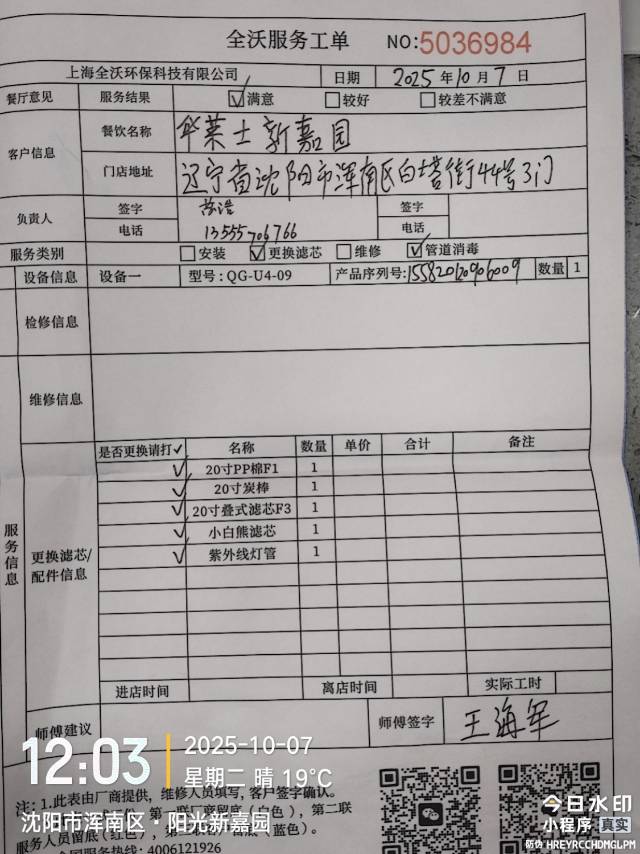 全沃服务工单 NO:5036984
上海全沃环保科技有限公司 日期 2025年10月7日
餐厅意见 服务结果 ☑满意 □较好 □较差不满意
客户信息 餐饮名称 华莱士新嘉园
门店地址 辽宁省沈阳市浑南区白塔街44号3门
负责人 签字 签字
电话 13555706766 电话
服务类别 □安装 ☑更换滤芯 □维修 ☑管道消毒
设备信息 设备一 型号:QG-U4-09 产品序列号:155820120906009 数量 1
检修信息
维修信息
服务信息
更换滤芯/配件信息
是否更换请打✓ 名称 数量 单价 合计 备注
✓ 20寸PP棉F1 1
✓ 20寸炭棒 1
✓ 20寸叠式滤芯F3 1
✓ 小白熊滤芯 1
✓ 紫外线灯管 1
进店时间 离店时间 实际工时
师傅建议 师傅签字 王海军
12:03 2025-10-07
星期二 晴 19℃
注:1.此表由厂商提供，维修人员填写，客户签字确认。
第一联厂商留底（白色），第二联
服务人员留底（红色），留底（蓝色）。
全国服务热线：4006121926
沈阳市浑南区·阳光新嘉园
今日水印
小程序 真实
防伪 HREYRCCHDMGLPM